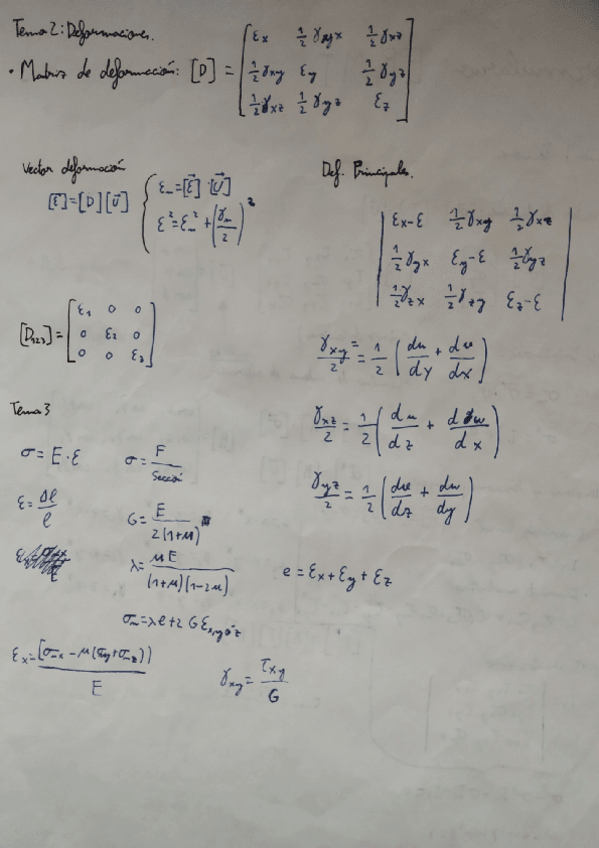 Tema 2: Deformaciones.
• Matriz de deformación: [D] = [ εx ½ γyx ½ γxz
½ γxy εy ½ γyz
½ γxz ½ γyz εz ]
Vector deformación
[ε⃗] = [D] [U⃗] { εn = [ε⃗] · [U⃗]
ε² = εn² + (γn/2)²
[D123] = [ ε1 0 0
0 ε2 0
0 0 ε3 ]
Def. Principales.
| εx-ε ½ γxy ½ γxz |
| ½ γyx εy-ε ½ γyz |
| ½ γzx ½ γzy εz-ε |
γxy/2 = = 1/2 (du/dy + dv/dx)
γxz/2 = 1/2 (du/dz + dw/dx)
γyz/2 = 1/2 (dv/dz + dw/dy)
e = εx + εy + εz
Tema 3
σ = E · ε σ = F/Sección
ε = Δl/l G = E/2(1+μ)
λ = μE/(1+μ)(1-2μ)
σn = λe + 2Gεx,y ó z
εx = [σnx - μ(σny + σnz)]/E γxy = τxy/G